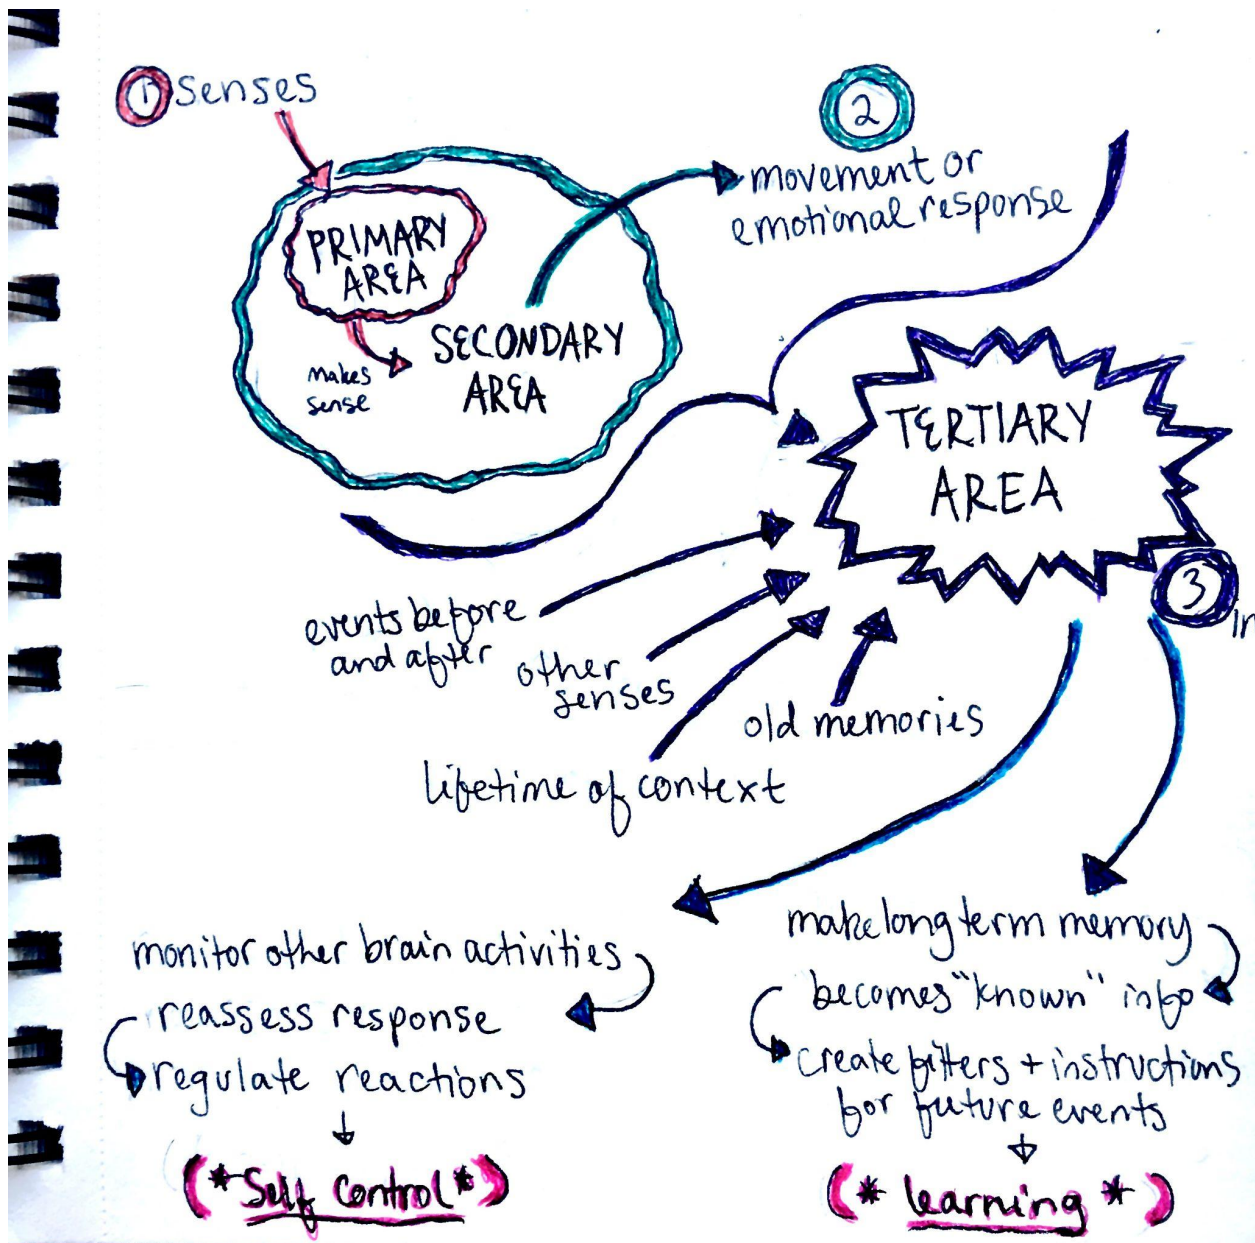 1 senses
2
movement or
emotional response
PRIMARY
AREA
makes
sense
SECONDARY
AREA
TERTIARY
AREA
3
In
events before
and after
other
senses
old memories
lifetime of context
monitor other brain activities
reassess response
regulate reactions
(*Self Control*)
make long term memory
becomes "known" info
create filters + instructions
for future events
(* learning *)